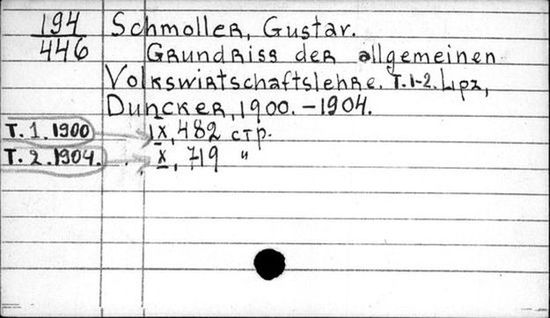 194 Schmoller, Gustav.
446 Grundriss der allgemeinen
Volkswirtschaftslehre. T. 1-2. Lpz,
Duncker, 1900. – 1904.
T. 1. 1900 IX, 482 стр.
T. 2. 1904. X, 719 "